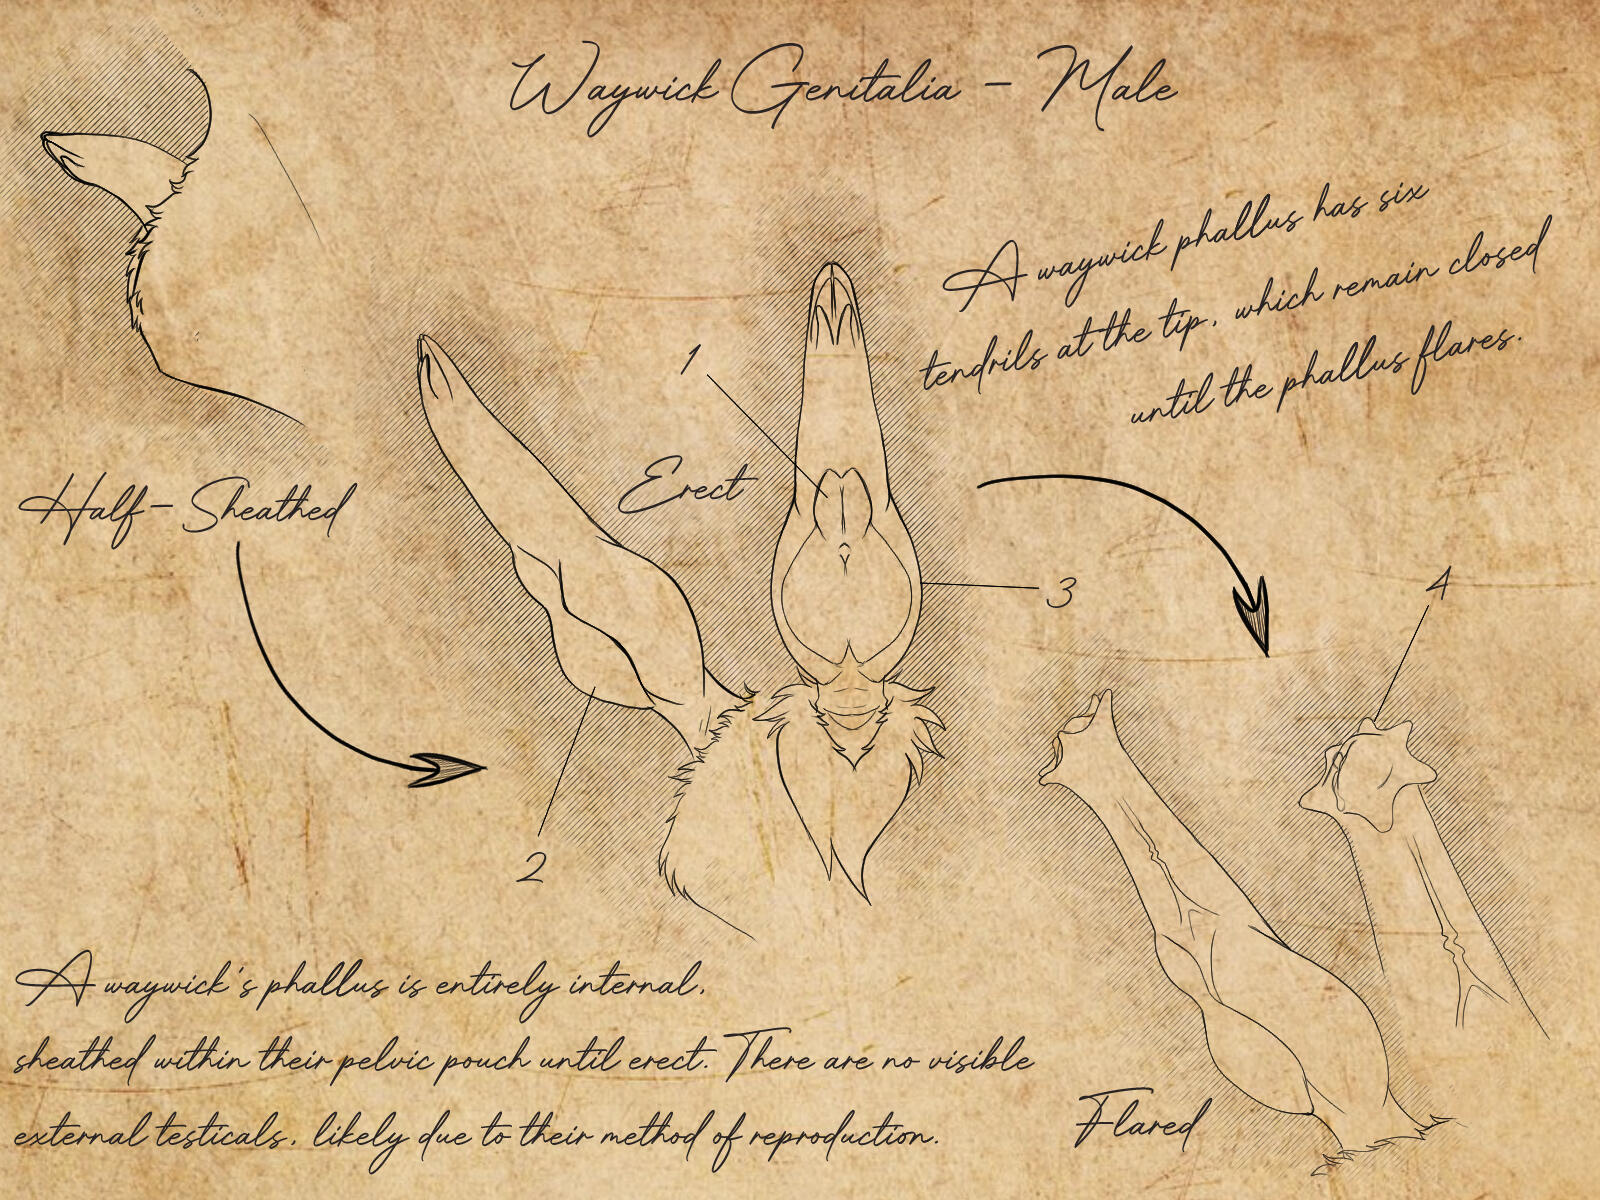 Waywick Genitalia - Male
A waywick phallus has six
tendrils at the tip, which remain closed
until the phallus flares.
1
Erect
Half-Sheathed
3
4
2
A waywick's phallus is entirely internal,
sheathed within their pelvic pouch until erect. There are no visible
external testicals, likely due to their method of reproduction.
Flared